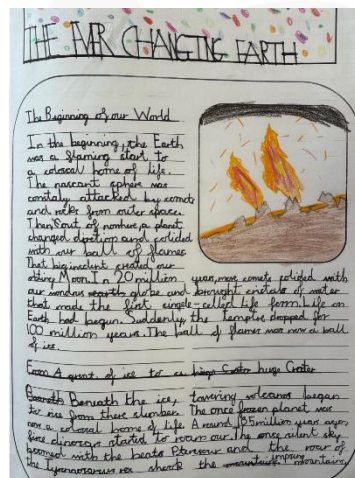 THE EVER CHANGING EARTH
The Beginning of our World
In the beginning, the Earth
was a flaming start to
a colosal home of life.
The nascent sphere was
constaly attacked by comets
and rocks from outer space.
Then, out of nowhere, a planet
changed direction and colided
with our ball of flames
That big incident created our
Moon. In 20 million years, more comets colided with
our wondrus earth globe and brought cristals of water
that made the first single-celled life form. Life on
Earth had begun. Suddenly the temptre dropped for
100 million years. The ball of flames was now a ball
of ice
From A giant of ice to a huge Crater huge Crater
Beneath Beneath the ice, towering volcanos began
to rise from there slumber. The once frozen planet was
now a colosal home of life. Around 135 million years ago,
dinosors started to roam our. The once silent sky
boomed with the beats and the roar of
the Tyrannosaurus rex shook the mountains mountains